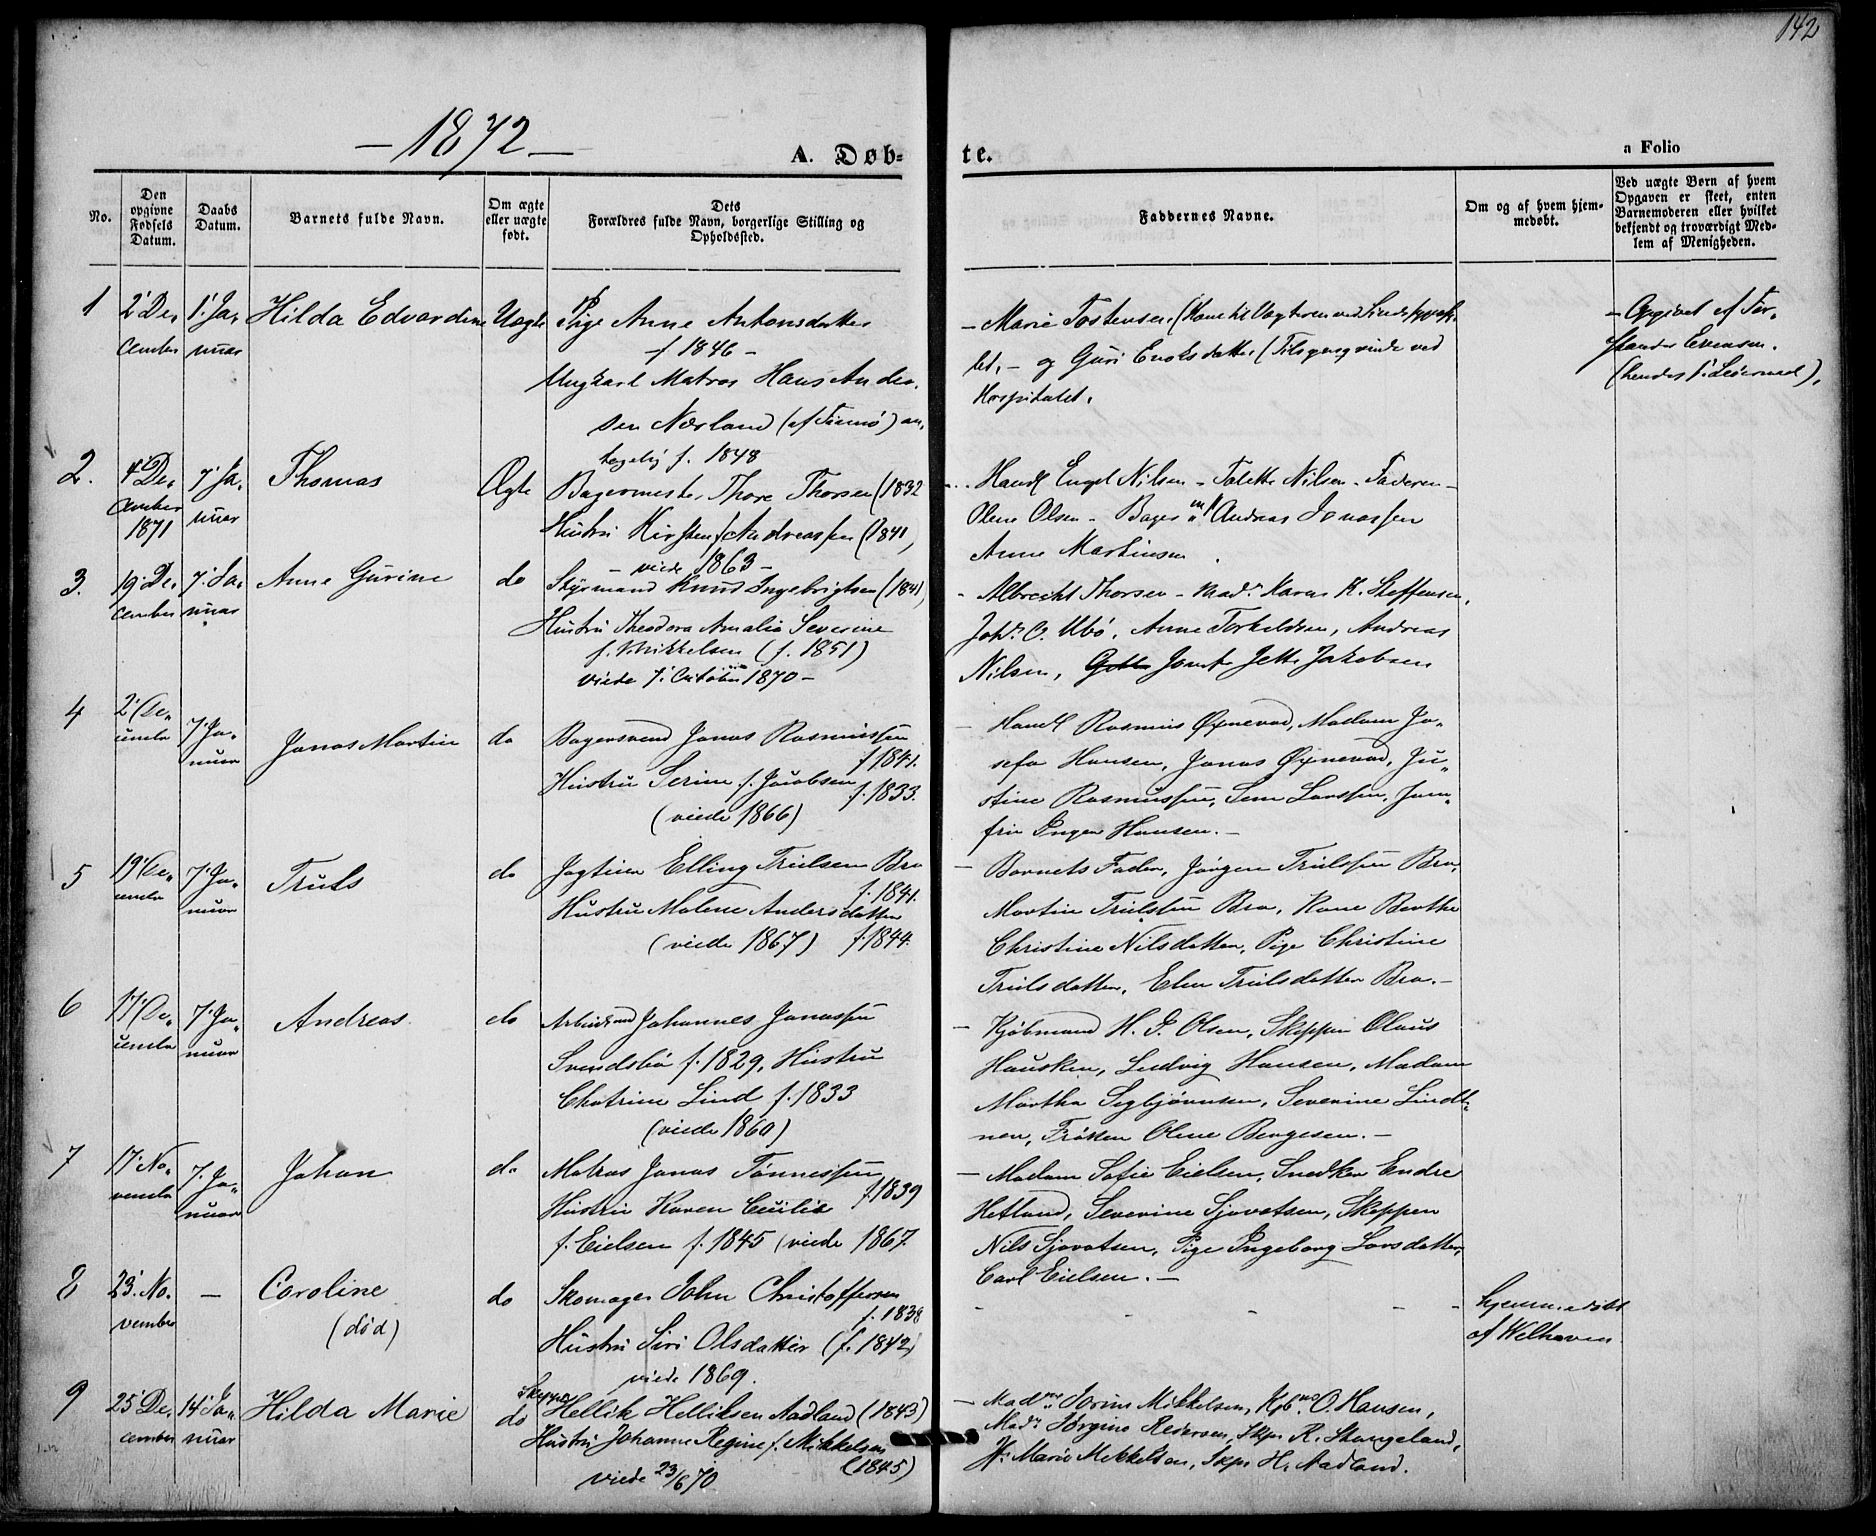 142
- 1872 -
A. Døb-
te.
a Folio
No.
Den opgivne Fødsels Datum.
Daabs Datum.
Barnets fulde Navn.
Om ægte eller uægte født.
Dets
Forældres fulde Navn, borgerlige Stilling og
Opholdssted.
Faddernes Navne.
Om og af hvem hjem-
medøbt.
Ved uægte Børn af hvem
Opgaven er skeet, enten
Barnemoderen eller hvilket
bekjendt og troværdigt Med-
lem af Menigheden.
1
2' De,
cember
1' Ja,
nuar
Hilda Edvardine
Uægte
Pige Anne Antonsdatter
f 1846 -
Ungkarl Matros Hans Ander,
sen Nærland (af ) an,
tagelig f. 1848
- Marie Tostensen, (Kone til Vagteren ved
let, - og Guri Enoksdatter ( ved
Hospitalet.
- Opgivet af For,
stander Evensen.
(hendes 1' Leiermaal),
2.
4' De,
cember
1871
7' Ja,
nuar
Thomas
Ægte
Bagermester Thore Thorsen (1832
Hustru Kirsten f Andreassen (1841,
- viede 1863 -
Handl Engel Nilsen - Talette Nilsen - Faderen -
Olene Olsen - Bager Andreas Jonassen
Anne Martinsen
3.
19' De,
cember
7' Ja,
nuar
Anne Gurine
do
Styrmand Knud Ingebrigtsen (1841)
Hustru Theodora Amalia Severine
f. Mikkelsen (f. 1851)
viede 7' October 1870 -
- Albrecht Thorsen - Mad. Karen K. Steffensen,
Joh. O. Ubø, Anne Torkeldsen, Andreas
Nilsen, Jomf. Jette Jakobsen
4
2' De,
cember
7' Ja,
nuar
Jonas Martin
do
Bagersvend Jonas Rasmussen
f 1841.
Hustru Serine f. Jacobsen
f. 1833.
(viede 1866)
- Handl Rasmus Øxnevad, Madam Jo,
sefa Hansen, Jonas Øxnevad, Ju,
stine Rasmussen, Sem Larssen, Jom,
fru Inger Hansen. -
5
19' De,
cember
7' Ja,
nuar
Truls
do
Jagteier Elling Trulsen Bro
f. 1841.
Hustru Malene Andersdatter
(viede 1867) f. 1844.
- Barnets Fader, Jørgen Trulsen Bro,
Martin Trulsen Bro, Kone Berthe
Christine Nilsdatter, Pige Christine
Trulsdatter, Elen Trulsdatter Bro. -
6
17' De,
cember
7' Ja,
nuar
Andreas
do
Arbeidsmd Johannes Jonassen
Svendsbø f. 1829, Hustru
Chatrine Lind f. 1833
(viede 1860)
- Kjøbmand H. P. Olsen, Skipper Olaus
Hausken, Ludvig Hansen, Madam
Martha Segbjørnsen, Severine Lindt,
ner, Frøken Oline Bergesen. -
7
17' No,
vember
7. Ja,
nuar
Johan
do
Matros Jonas Tønnessen
f. 1839
Hustru Karen Cecilie
f. Eielsen f. 1845 (viede 1867.
- Madam Sofie Eielsen, Snedker Endre
Hetland, Severine Sjovatsen, Skipper
Nils Sjovatsen, Pige Ingeborg Larsdatter,
Carl Eielsen. -
8
23' No,
vember
-
Caroline
(død)
do
Skomager John Christoffersen
f. 1838
Hustru Siri Olsdatter (f. 1842)
viede 1869.
- - - - -
hjemmedøbt
af Welhaven
9
25' De,
cember
14' Ja,
nuar
Hilda Marie
do
Skipper
Hellik Helliksen Aadland (1843)
Hustru Johanne Regine f. Mikkelsen
(1845)
viede 23/6 70
- Mad Sorine Mikkelsen, Kjbm. O. Hansen,
Mad. Jørgine Pedersen, Skpr R. Stangeland,
Marie Mikkelsen, Skpr H. Aadland.